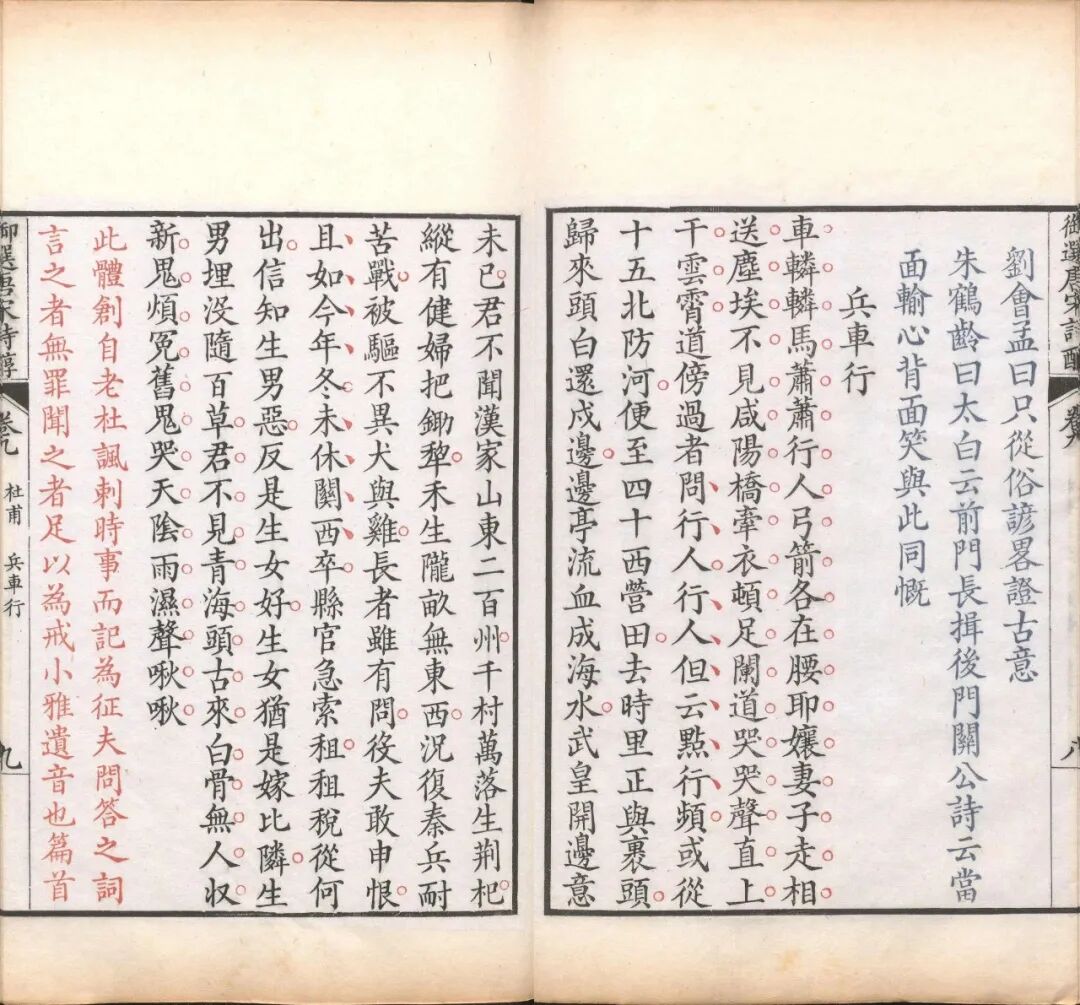 御選唐宋詩醇
卷九
八
劉會孟曰只從俗諺畧證古意
朱鶴齡曰太白云前門長揖後門關公詩云當
面輸心背面笑與此同慨
兵車行
車轔轔馬蕭蕭行人弓箭各在腰耶孃妻子走相
送塵埃不見咸陽橋牽衣頓足闌道哭哭聲直上
干雲霄道傍過者問行人行人但云點行頻或從
十五北防河便至四十西營田去時里正與裹頭
歸來頭白還戍邊邊亭流血成海水武皇開邊意
未已君不聞漢家山東二百州千村萬落生荆杞
縱有健婦把鋤犂禾生隴畝無東西況復秦兵耐
苦戰被驅不異犬與雞長者雖有問役夫敢申恨
且如今年冬未休關西卒縣官急索租租稅從何
出信知生男惡反是生女好生女猶是嫁比隣生
男埋没隨百草君不見青海頭古來白骨無人収
新鬼煩冤舊鬼哭天陰雨濕聲啾啾
此體創自老杜諷刺時事而記為征夫問答之詞
言之者無罪聞之者足以為戒小雅遺音也篇首
御選唐宋詩醇
卷九
杜甫 兵車行
九